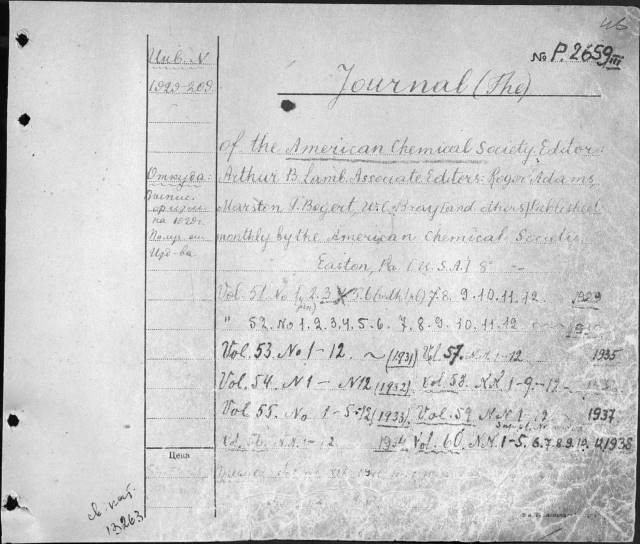 46
No P. 2659/III
Инв. N
1929-209
Journal (The)
of the American Chemical Society, Editor:
Откуда:
Arthur B. Lamb. Associate Editors: Roger Adams,
Выпис.
Marston T. Bogert, W.C. Bray (and others) Published
на 1929 г.
Получ от
monthly by the American Chemical Society
Изд-ва
Easton, Pa (U.S.A.) 8°
Vol. 51. No 1, 2, 3, 4, 5, 6 7. 8. 9. 10. 11. 12 1929
" 52. No 1. 2. 3. 4. 5. 6. 7. 8. 9. 10. 11. 12
Vol. 53. No 1-12. ~ (1931) Vol. 57. N.N. 1-12 1935
Vol. 54. N 1 - N 12 (1932) Vol. 58. N.N. 1-9.-12
Vol. 55. No 1-5-12 (1933) Vol. 59 N.N. 1 12 1937
Vol. 56. N.N. 1-12 1934 Vol. 60. N.N. 1-5. 6. 7. 8. 9. 10. 11 1938
Цена
св. кат.
13263